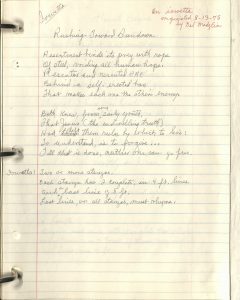 Irvette
An irvette
originated 8-13-75
by
Rushing Toward Sundown
Resentment binds its prey with rope
Of steel, voiding all human hope.
Resenter and resented ARE
Behind a self-erected bar
That makes each one the other's enemy.
Both knew, from early youth,
That Jesus (the indwelling truth)
Had them rules by which to live:
To understand, is to forgive...
Till that is done, neither one can go free.
Irvette: Two or more stanzas.
Each stanza has 2 couplets, in 4 ft. lines
and last line is 5 ft.
Last lines, in all stanzas, must rhyme.